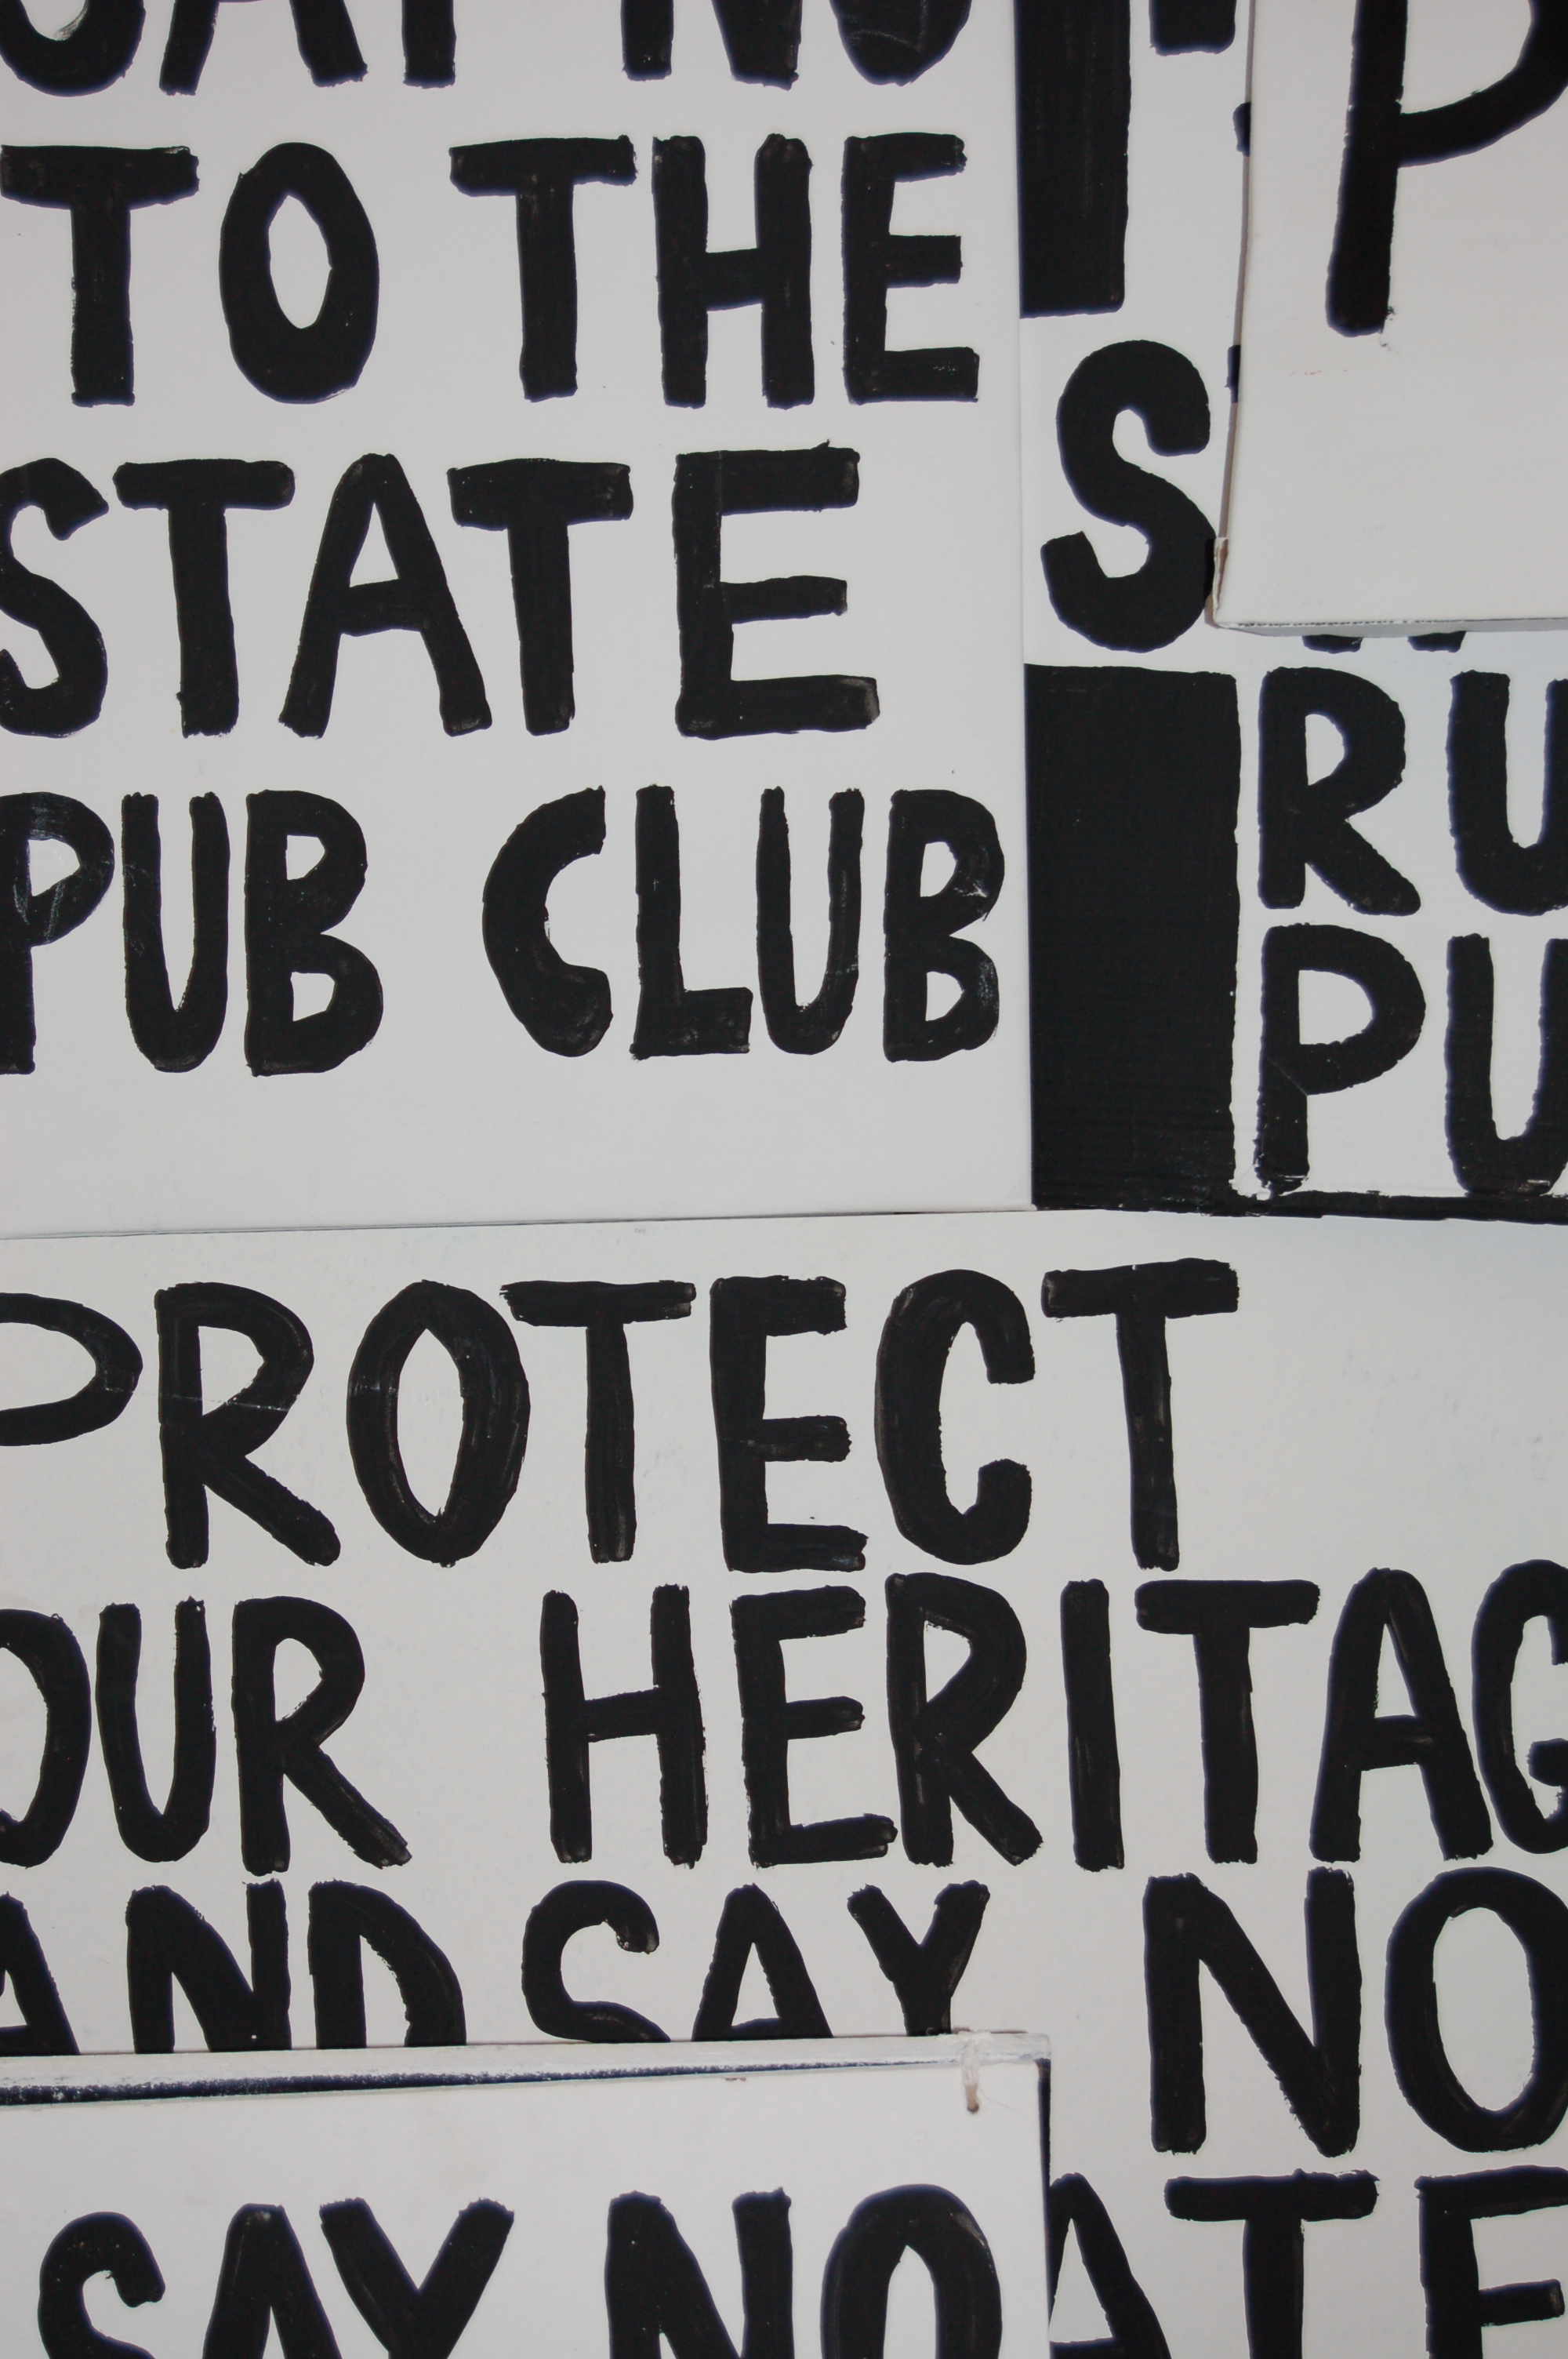 SAY NO
TO THE
STATE
PUB CLUB
P
S
RU
PU
PROTECT
OUR HERITAG
AND SAY NO
ATE
SAY NO